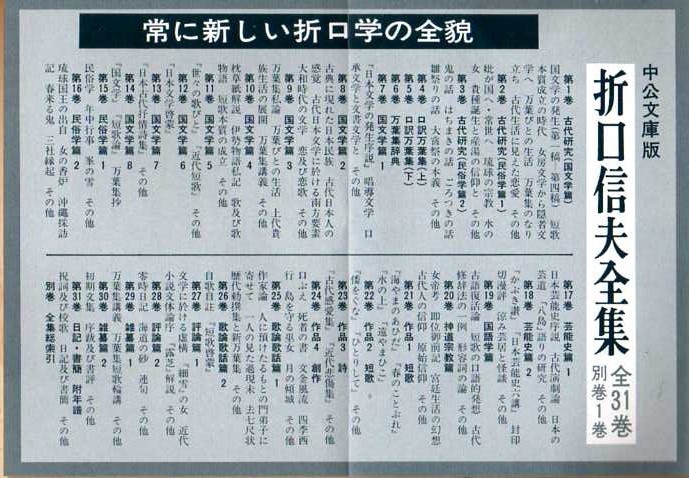 常に新しい折口学の全貌
中公文庫版
折口信夫全集
全31巻
別巻1巻
第1巻 古代研究(国文学篇)
国文学の発生(第一稿─第四稿) 短歌
本質成立の時代 女房文学から隠者文
学へ 万葉びとの生活 万葉集のなり
立ち 古代生活に見えた恋愛 その他
第2巻 古代研究(民俗学篇1)
妣が国へ・常世へ 琉球の宗教 水の
女 貴種誕生と産湯の信仰と その他
第3巻 古代研究(民俗学篇2)
鬼の話 はちまきの話 ごろつきの話
雛祭りの話 大嘗祭の本義 その他
第4巻 口訳万葉集(上)
第5巻 口訳万葉集(下)
第6巻 万葉集辞典
第7巻 国文学篇1
「日本文学の発生序説」 唱導文学 口
承文学と文書文学と その他
第8巻 国文学篇2
古典に現れた日本民族 古代日本人の
感覚 古代日本文学に於ける南方要素
大和時代の文学 恋及び恋歌 その他
第9巻 国文学篇3
万葉集私論 万葉びとの生活 上代貴
族生活の展開 万葉集講義 その他
第10巻 国文学篇4
枕草紙解説 伊勢物語私記 歌及び歌
物語 短歌本質の成立 その他
第11巻 国文学篇5
「世々の歌びと」「近代短歌」 その他
第12巻 国文学篇6
「日本文学啓蒙」
第13巻 国文学篇7
「日本古代抒情詩集」 その他
第14巻 国文学篇8
「国文学」「短歌論」 万葉集抄
第15巻 民俗学篇1
民俗学 年中行事 峯の雪 その他
第16巻 民俗学篇2
琉球国王の出自 女の香炉 沖縄採訪
記 春来る鬼 三社縁起 その他
第17巻 芸能史篇1
日本芸能史序説 古代演劇論 日本の
芸道 「八島」語りの研究 その他
第18巻 芸能史篇2
「かぶき讃」「日本芸能史六講」 封印
切漫評 涼み芝居と怪談 その他
第19巻 国語学篇
古語復活論 短歌の口語的発想 古代
修辞法の一例 形容詞の論 その他
第20巻 神道宗教篇
女帝考 即位御前記 宮廷生活の幻想
古代人の信仰 原始信仰 その他
第21巻 作品1 短歌
「海やまのあひだ」「春のことぶれ」
「水の上」「遠やまひこ」
第22巻 作品2 短歌
「倭をぐな」「ひとりして」 その他
第23巻 作品3 詩
「古代感愛集」「近代悲傷集」 その他
第24巻 作品4 創作
口ぶえ 死者の書 文金風流 四季西
行 島を守る巫女 月の傾城 その他
第25巻 歌論歌話篇1
作家論 人に預けたるもとの門弟子に
寄せて 一人の見た過現未 去七尺状
歴代勅撰集と新万葉集 その他
第26巻 歌論歌話篇2
自歌自註 「短歌啓蒙」
第27巻 評論篇1
文学に於ける虚構 「細雪」の女 近代
小説文体論序 「露芝」解説 その他
第28巻 評論篇2
零時日記 海道の砂 連句 その他
第29巻 雑纂篇1
万葉集講義 万葉集短歌輪講 その他
第30巻 雑纂篇2
初期文集 序跋及び書評 その他
第31巻 日記・書簡 附年譜
祝詞及び校歌 日記及び書簡 その他
別巻 全集総索引